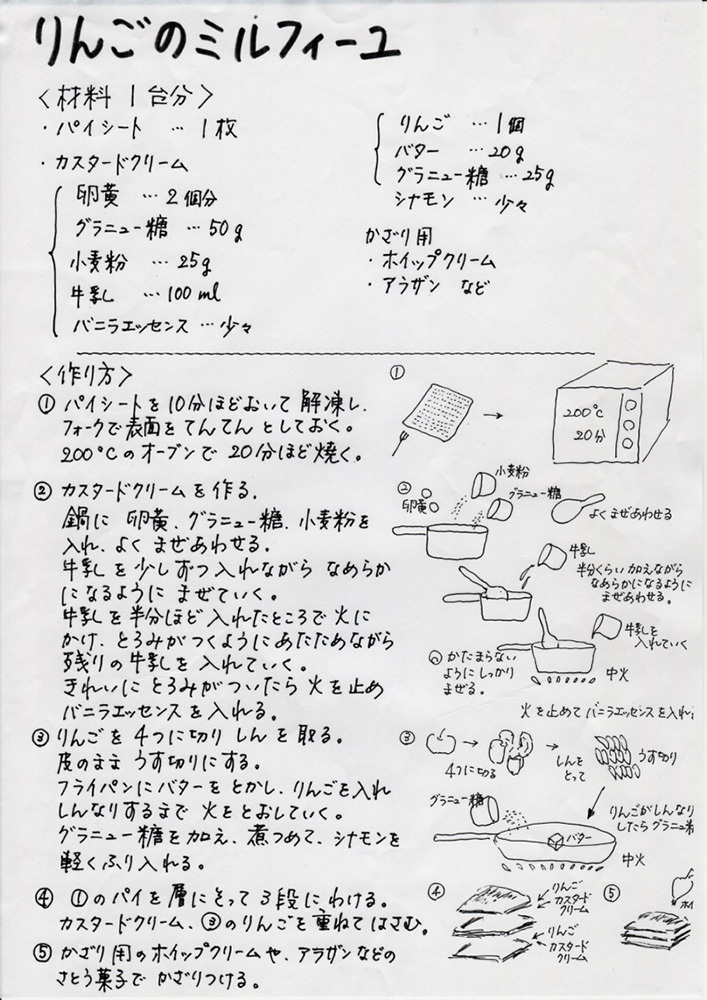 りんごのミルフィーユ
〈材料 1台分〉
・パイシート … 1枚
・カスタードクリーム
卵黄 … 2個分
グラニュー糖 … 50g
小麦粉 … 25g
牛乳 … 100ml
バニラエッセンス … 少々
りんご … 1個
バター … 20g
グラニュー糖 … 25g
シナモン … 少々
かざり用
・ホイップクリーム
・アラザン など
〈作り方〉
① パイシートを10分ほどおいて解凍し、
フォークで表面をてんてんとしておく。
200℃のオーブンで20分ほど焼く。
② カスタードクリームを作る。
鍋に 卵黄、グラニュー糖、小麦粉を
入れ、よく まぜあわせる。
牛乳を少しずつ入れながら なめらか
になるように まぜていく。
牛乳を半分ほど入れたところで火に
かけ、とろみがつくようにあたためながら
残りの牛乳を入れていく。
きれいに とろみがついたら火を止め
バニラエッセンスを入れる。
③ りんごを4つに切り しんを取る。
皮のまま うす切りにする。
フライパンにバターをとかし、りんごを入れ
しんなりするまで 火をとおしていく。
グラニュー糖を加え、煮つめて、シナモンを
軽くふり入れる。
④ ①のパイを層にそって3段にわける。
カスタードクリーム、③のりんごを重ねてはさむ。
⑤ かざり用のホイップクリームや、アラザンなどの
さとう菓子で かざりつける。
①
200℃
20分
②
卵黄
小麦粉
グラニュー糖
よくまぜあわせる
牛乳
半分くらい加えながら
なめらかになるように
まぜあわせる。
牛乳を
入れていく
かたまらない
ようにしっかり
まぜる。
中火
火を止めてバニラエッセンスを入れ
③
4つに切る
しんを
とって
うす切り
グラニュー糖
バター
りんごがしんなり
したら グラニュ糖
中火
④
りんご
カスタード
クリーム
りんご
カスタード
クリーム
⑤
ホイ